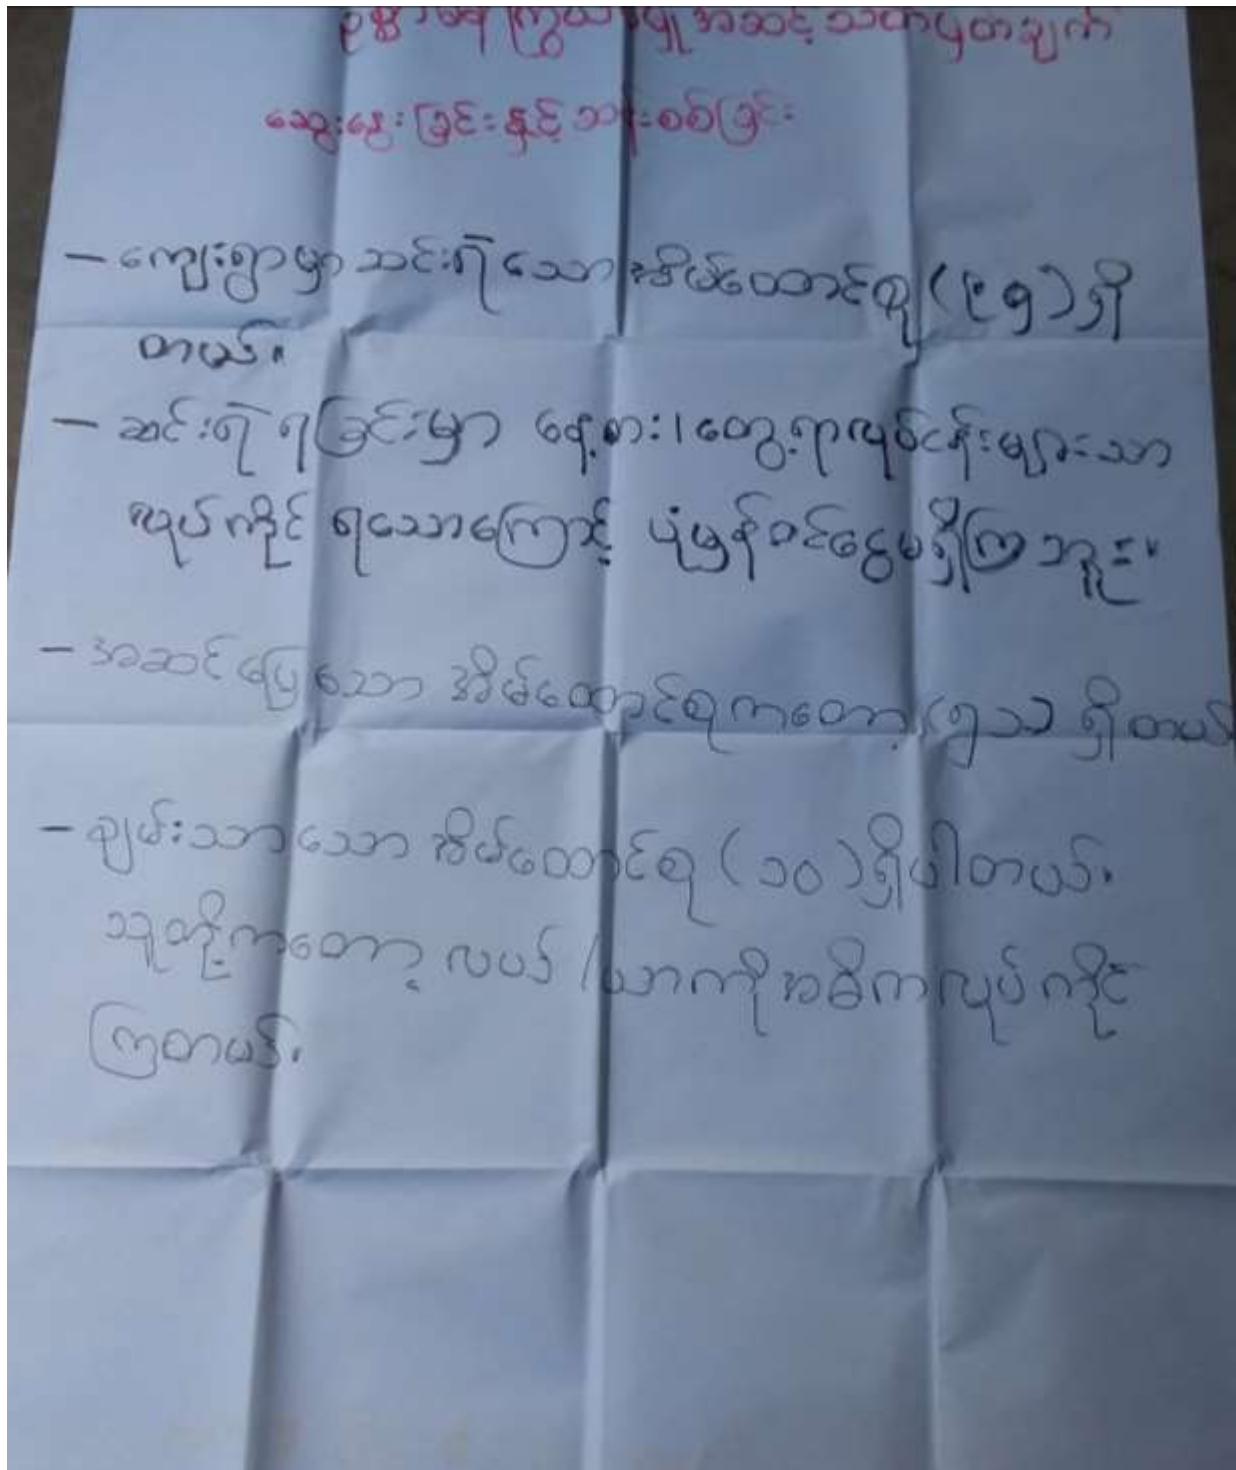 ဥစ္စာဓန ကြွယ်ဝမှု အဆင့် သတ်မှတ်ချက်
ဆွေးနွေးခြင်းနှင့် သန်းစစ်ခြင်း
- ကျေးရွာမှာ ဆင်းရဲသော အိမ်ထောင်စု (၉၅) ရှိ
တယ်။
- ဆင်းရဲရခြင်းမှာ နေ့စား၊ တွေ့ရာလုပ်ငန်းများသာ
လုပ်ကိုင် ရသောကြောင့် ပုံမှန်ဝင်ငွေမရှိကြဘူး။
- အဆင်ပြေသော အိမ်ထောင်စုကတော့ ရှိတယ်
- ချမ်းသာသော အိမ်ထောင်စု (၁၀) ရှိပါတယ်။
သူတို့ကတော့ လယ်/ယာကို အဓိကလုပ်ကိုင်
ကြတယ်။